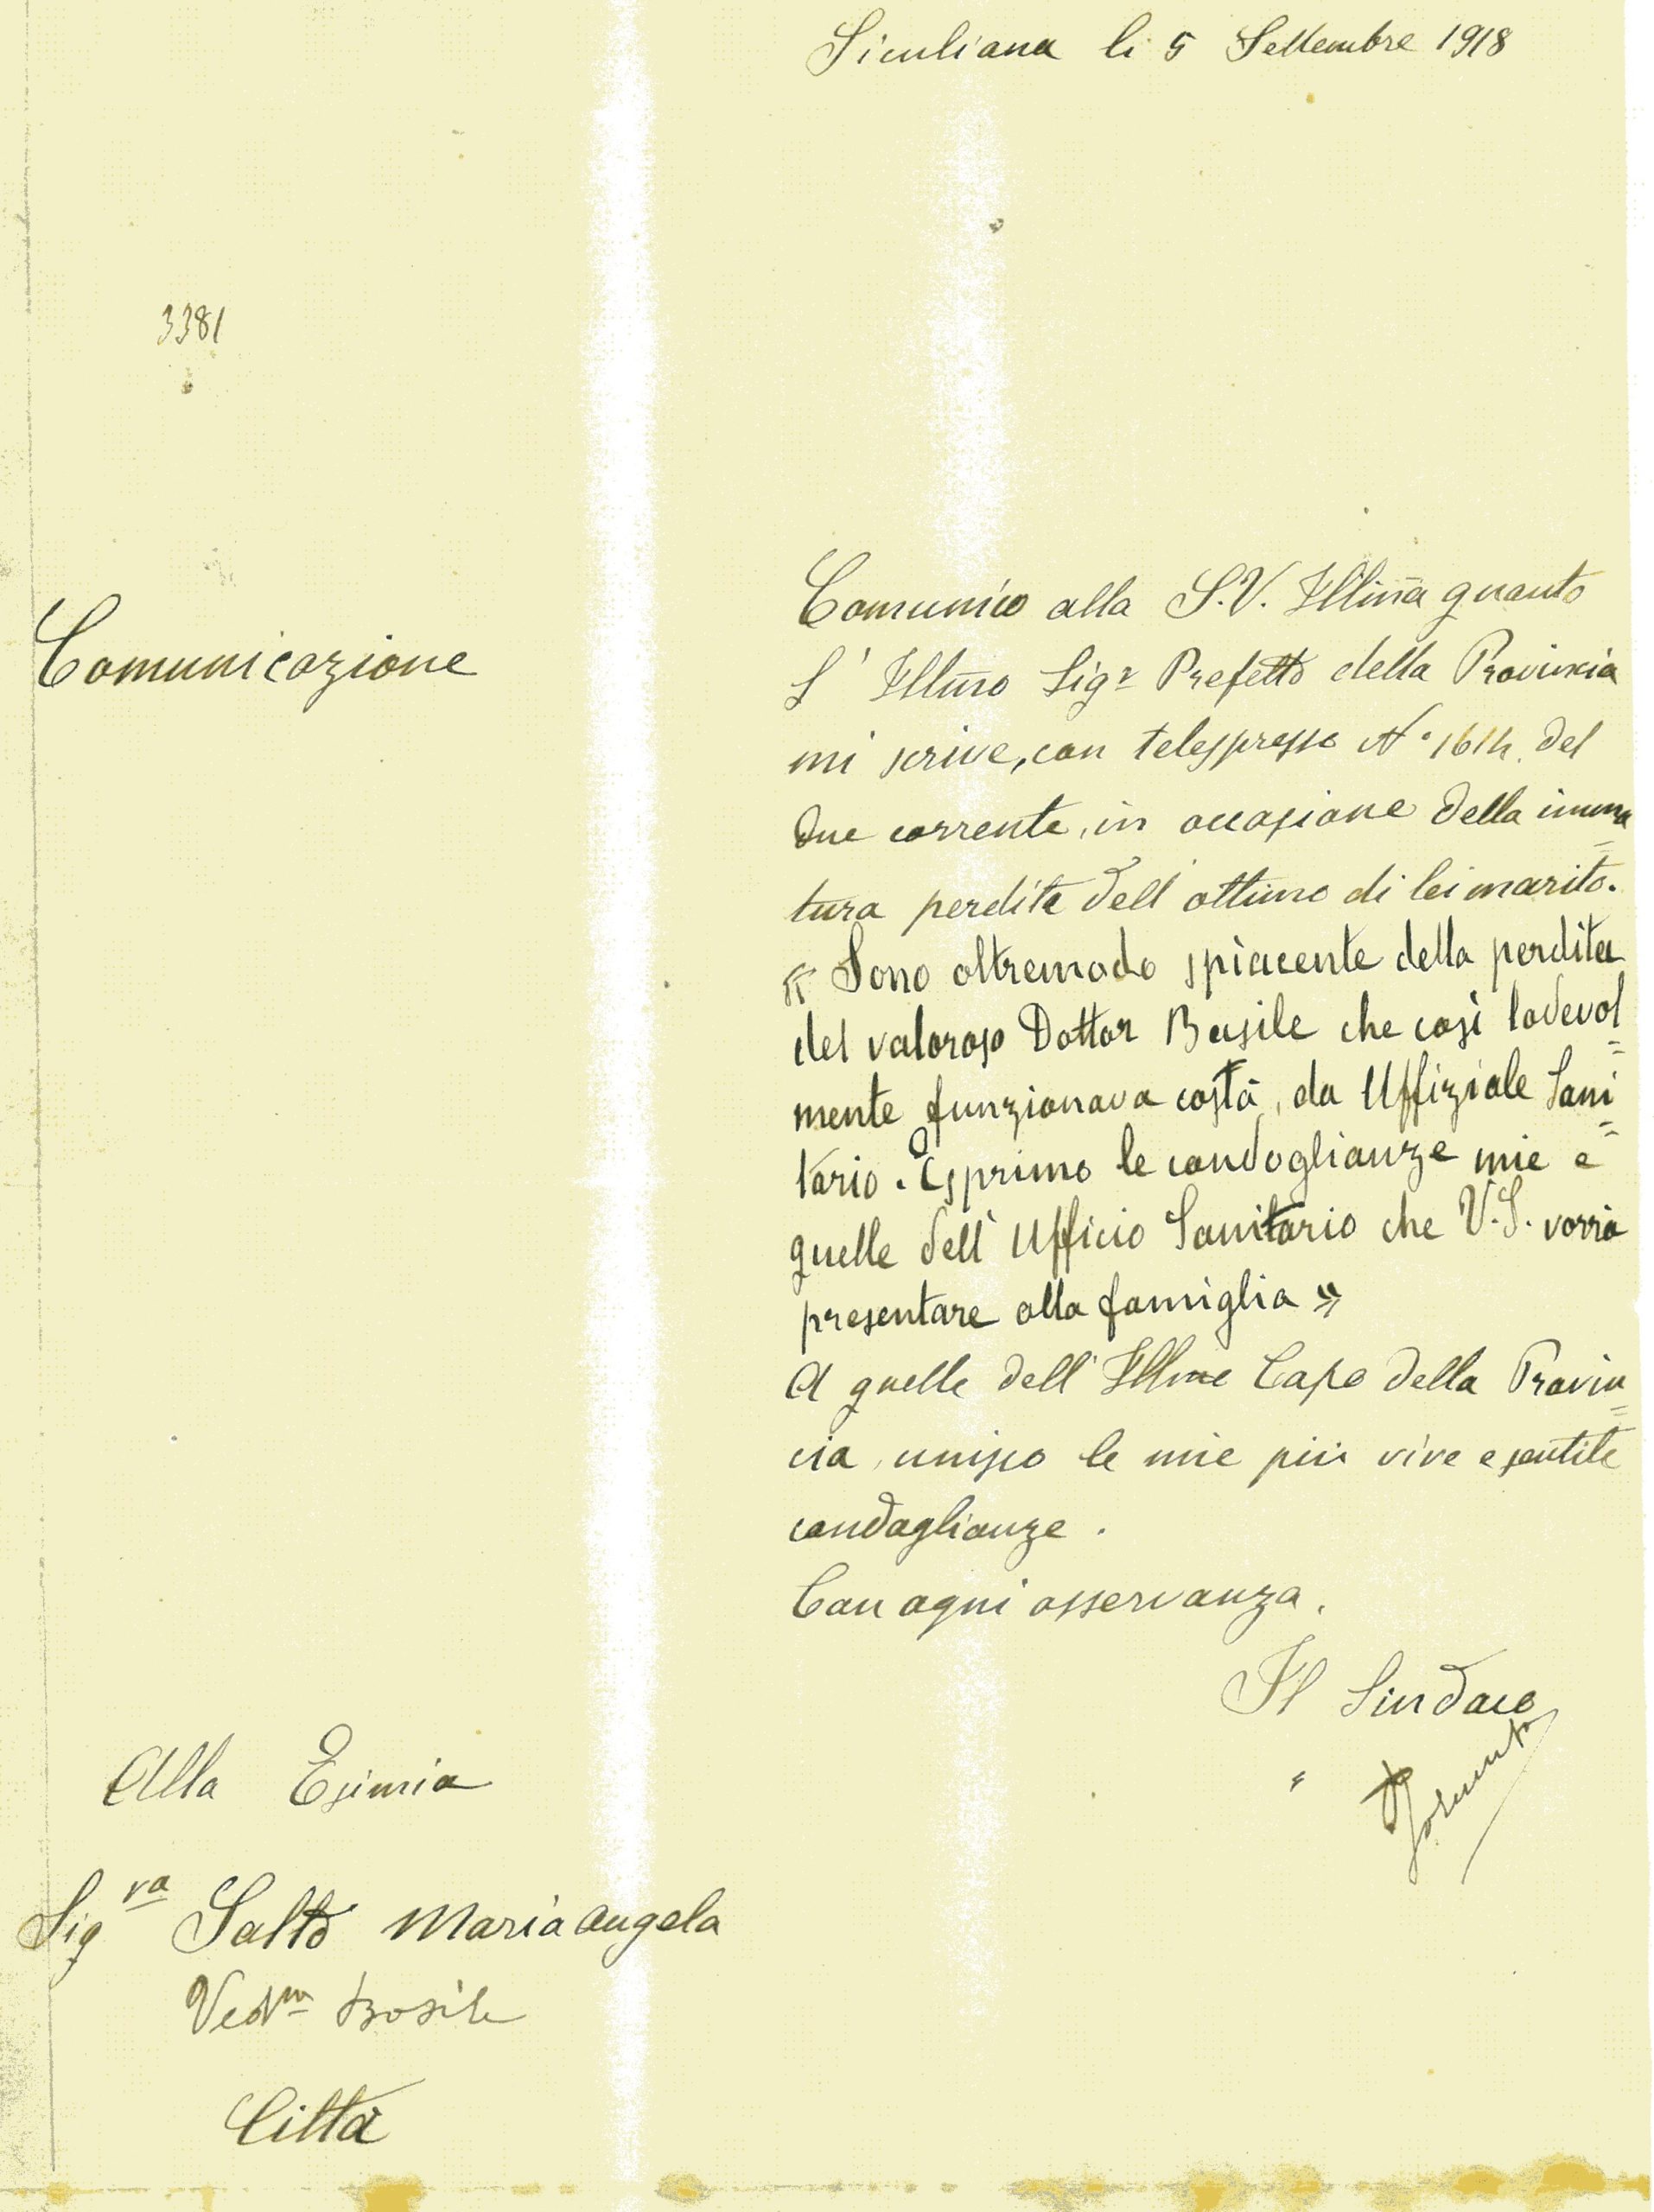 Siculiana li 5 Settembre 1918
3381
Comunicazione
Comunico alla S.V. Illm̃a quanto
l' Illm̃o Sigr Prefetto della Provincia
mi scrive, con telespresso N° 1614 del
due corrente, in occasione della imma
tura perdita dell'ottimo di lei marito.
« Sono oltremodo spiacente della perdita
del valoroso Dottor Basile che così lodevol=
mente funzionava costà, da Uffiziale Sani=
tario. Esprimo le condoglianze mie e
quelle dell'Ufficio Sanitario che V.S. vorrà
presentare alla famiglia »
A quelle dell'Illmo Capo della Provin=
cia, unisco le mie più vive e sentite
condoglianze.
Con ogni osservanza.
Il Sindaco
Alla Esimia
Sigra Salto Maria angela
Basile
Città